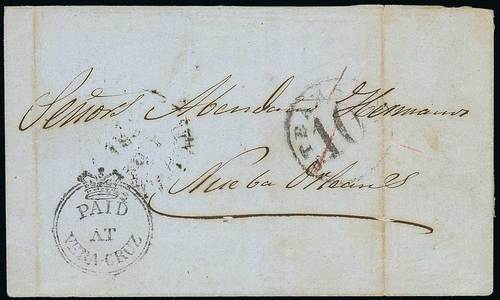 Señores Avendaño Hermanos
STEAM
10
Nueba Orleans
PAID
AT
VERA-CRUZ